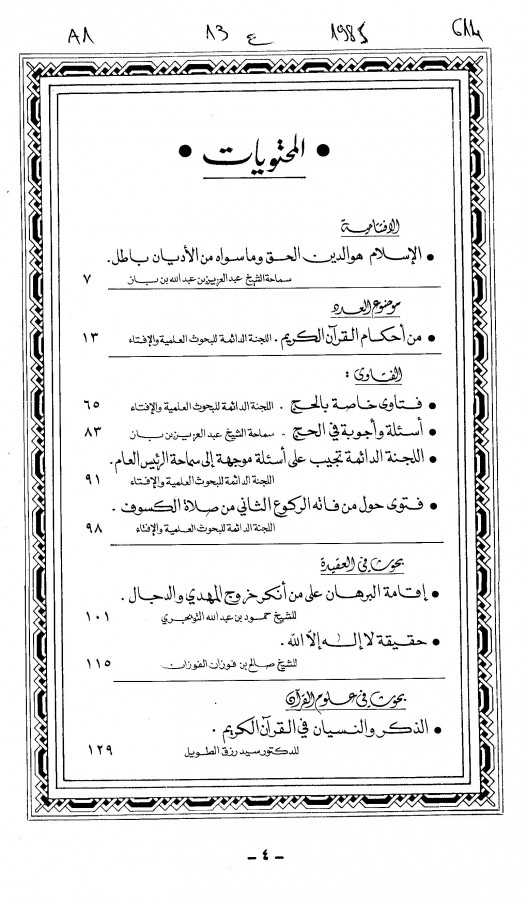 A1 13 ع 1985 614
• المحتويات •
الافتتاحية
• الإسلام هو الدين الحق وما سواه من الأديان باطل.
سماحة الشيخ عبد العزيز بن عبد الله بن باز ٧
موضوع العدد
• من أحكام القرآن الكريم . اللجنة الدائمة للبحوث العلمية والإفتاء ١٣
الفتاوى :
• فتاوى خاصة بالحج . اللجنة الدائمة للبحوث العلمية والإفتاء ٦٥
• أسئلة وأجوبة في الحج - سماحة الشيخ عبد العزيز بن باز ٨٣
• اللجنة الدائمة تجيب على أسئلة موجهة إلى سماحة الرئيس العام.
اللجنة الدائمة للبحوث العلمية والإفتاء ٩١
• فتوى حول من فاته الركوع الثاني من صلاة الكسوف .
اللجنة الدائمة للبحوث العلمية والإفتاء ٩٨
بحوث في العقيدة
• إقامة البرهان على من أنكر خروج المهدي والدجال .
للشيخ حمود بن عبد الله التويجري ١٠١
• حقيقة لا إله إلا الله .
للشيخ صالح بن فوزان الفوزان ١١٥
بحوث في علوم القرآن
• الذكر والنسيان في القرآن الكريم .
للدكتور سيد رزق الطويل ١٢٩
- ٤ -